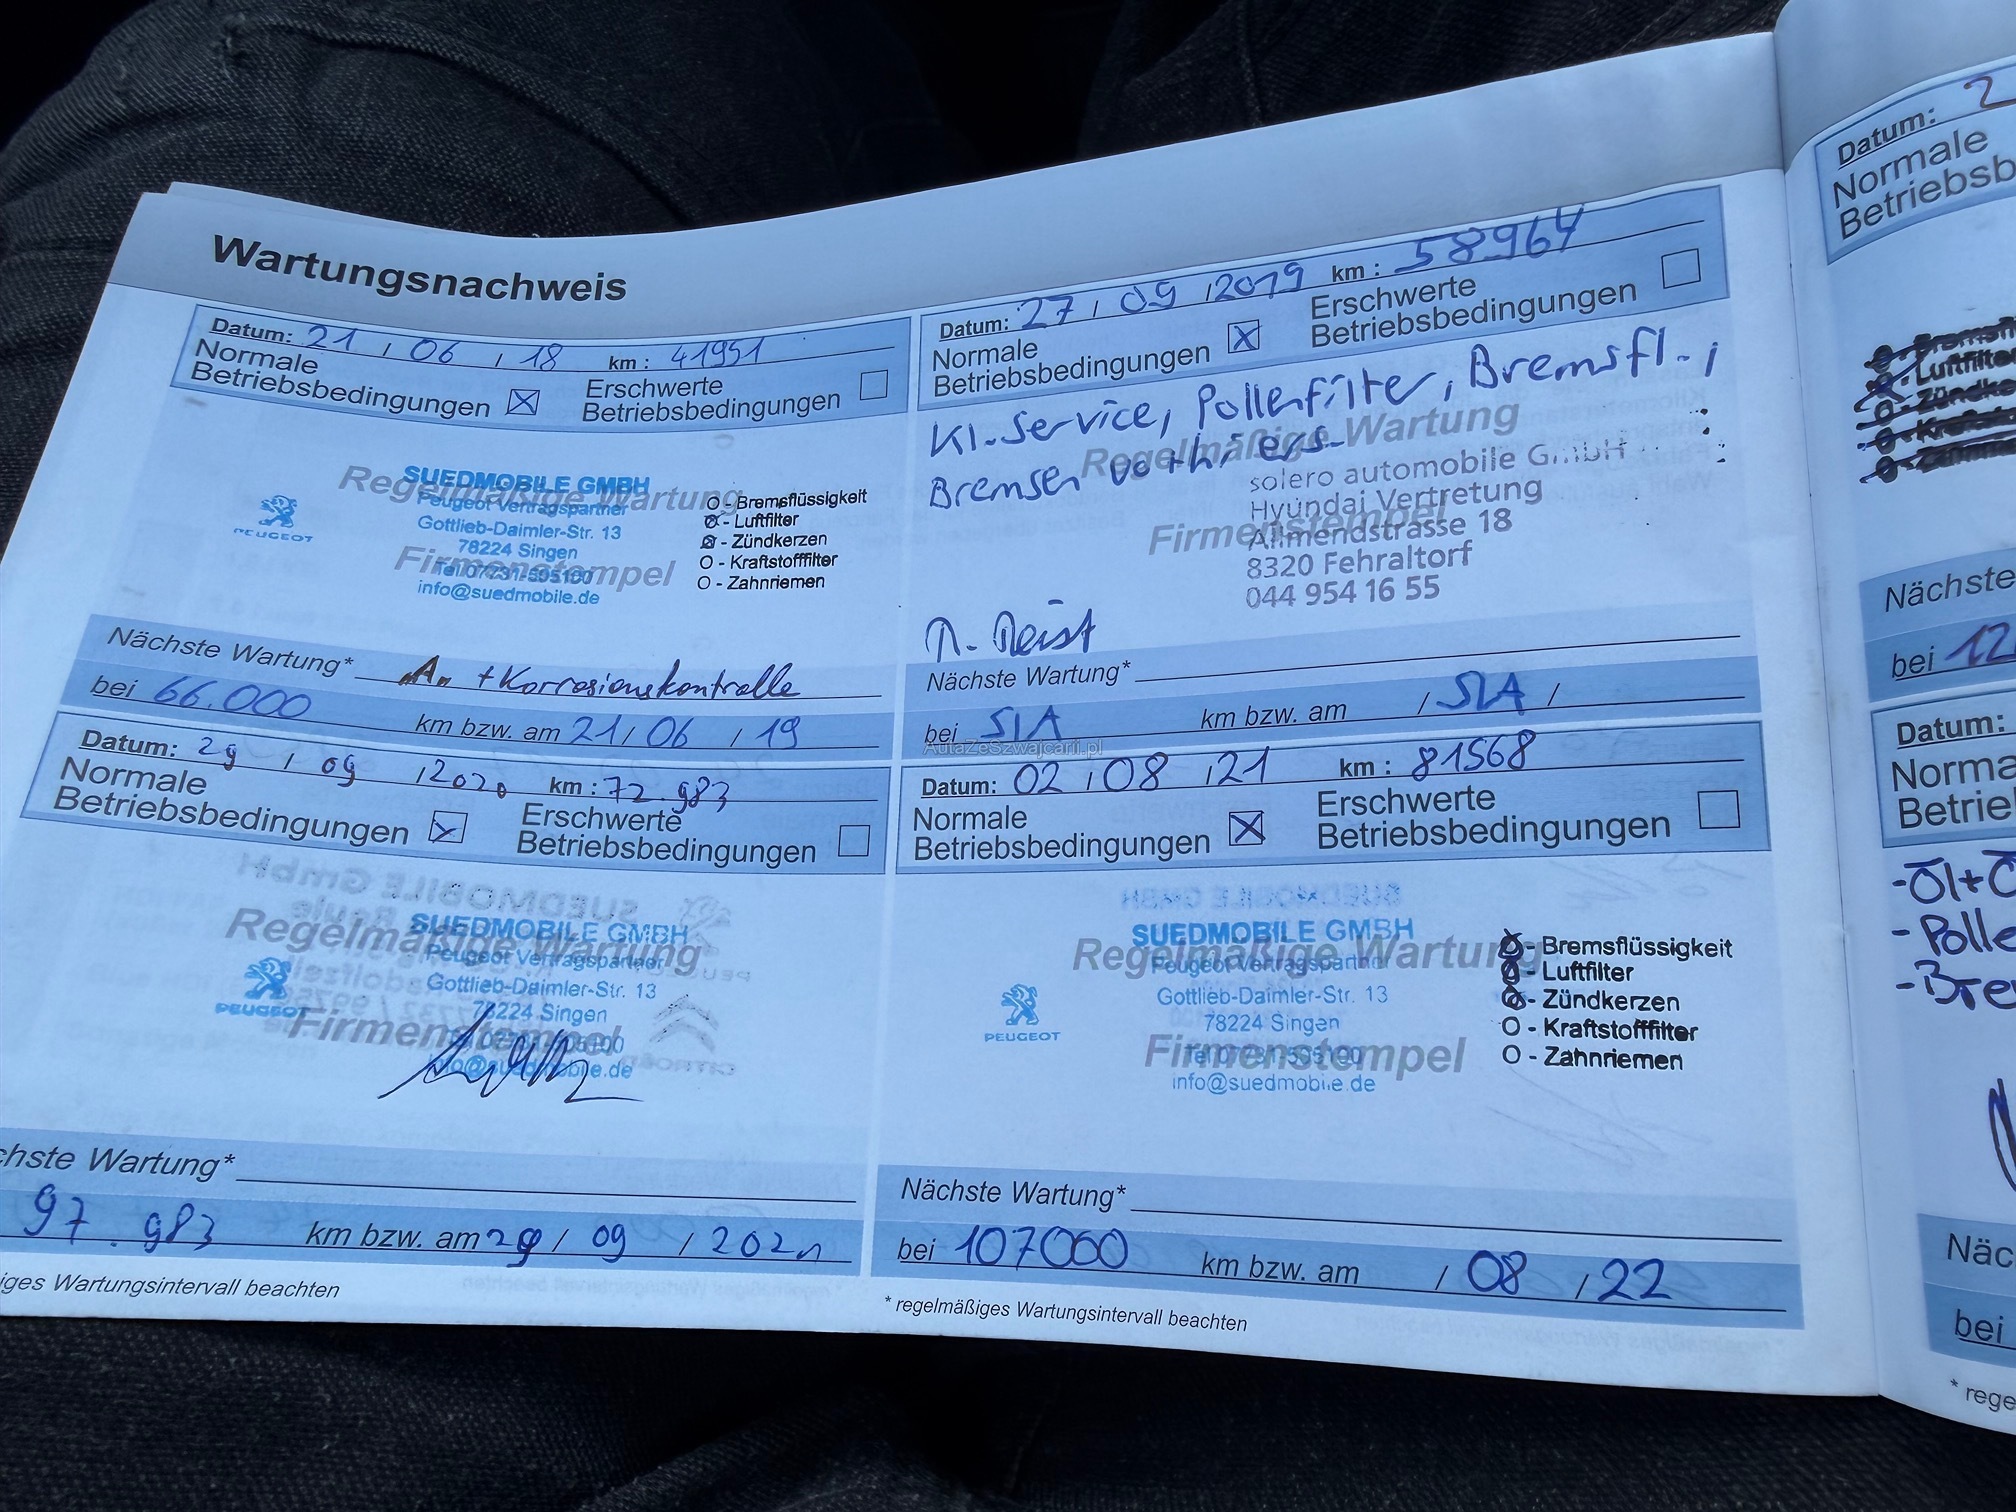 Wartungsnachweis
Datum: 21 / 06 / 18 km : 41951
Normale
Betriebsbedingungen
Erschwerte
Betriebsbedingungen
Regelmäßige Wartung
SUEDMOBILE GMBH
Peugeot Vertragspartner
Gottlieb-Daimler-Str. 13
78224 Singen
Firmenstempel
Tel.07731-505100
info@suedmobile.de
PEUGEOT
O - Bremsflüssigkeit
- Luftfilter
- Zündkerzen
O - Kraftstofffilter
O - Zahnriemen
Nächste Wartung* "A" + Korrosionskontrolle
bei 66.000 km bzw. am 21 / 06 / 19
Datum: 27 / 09 / 2019 km : 58964
Normale
Betriebsbedingungen
Erschwerte
Betriebsbedingungen
Kl.-Service, Pollenfilter, Bremsfl.
Bremsen
Regelmäßige Wartung
solero automobile GmbH
Hyundai Vertretung
Firmenstempel
Allmendstrasse 18
8320 Fehraltorf
044 954 16 55
Nächste Wartung*
bei SIA km bzw. am / SIA /
AutaZeSzwajcarii.pl
Datum: 29 / 09 / 2020 km : 72.983
Normale
Betriebsbedingungen
Erschwerte
Betriebsbedingungen
Regelmäßige Wartung
SUEDMOBILE GMBH
Peugeot Vertragspartner
Gottlieb-Daimler-Str. 13
78224 Singen
Firmenstempel
info@suedmobile.de
PEUGEOT
chste Wartung*
97.983 km bzw. am 29 / 09 / 2021
iges Wartungsintervall beachten
Datum: 02 / 08 / 21 km : 81568
Normale
Betriebsbedingungen
Erschwerte
Betriebsbedingungen
SUEDMOBILE GMBH
Regelmäßige Wartung
Peugeot Vertragspartner
Gottlieb-Daimler-Str. 13
78224 Singen
Firmenstempel
Tel.07731-505100
info@suedmobile.de
PEUGEOT
- Bremsflüssigkeit
- Luftfilter
- Zündkerzen
O - Kraftstofffilter
O - Zahnriemen
Nächste Wartung*
bei 107000 km bzw. am / 08 / 22
* regelmäßiges Wartungsintervall beachten
Datum: 2
Normale
Betriebsb
Luftfilte
Zündke
Nächste
bei 12
Datum:
Norma
Betrieb
- Öl+
- Polle
- Bre
Näc
bei
* rege